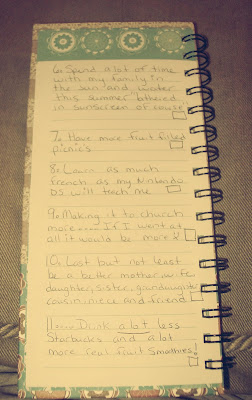 6. Spend a lot of time
with my family in
the sun and water
this summer lathered
in sunscreen of course
7. Have more fruit filled
picnics
8. Learn as much
french as my Nintendo
DS will teach me
9. Making it to church
more..... If I went at
all it would be more
10. Last but not least
be a better mother, wife,
daughter, sister, grandaughter
cousin, niece and friend
11..... Drink a lot less
Starbucks and a lot
more real fruit smoothies!